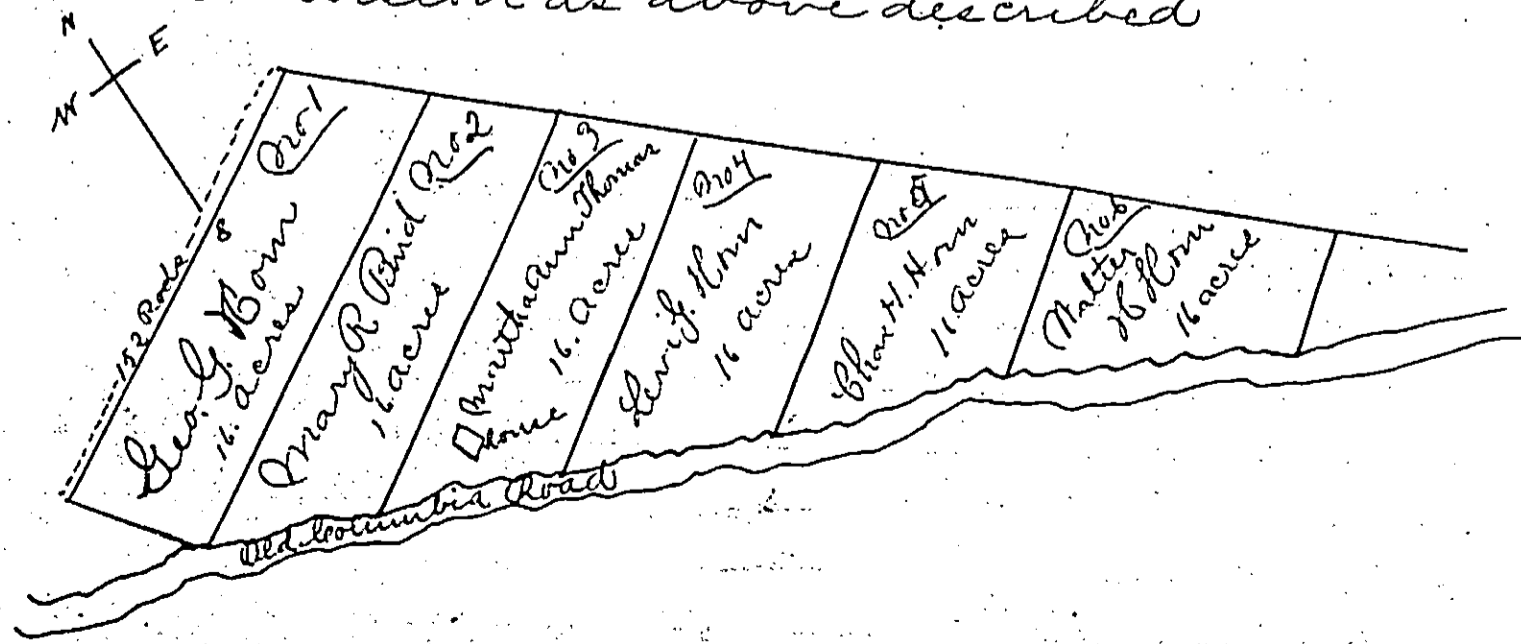 as above described
N
E
W
152 Rods
8
No 1
Geo. G. Horn
16. acres
No. 2
Mary R Bird
16 acres
No 3
Martha Ann Thomas
House 16. acres
No 4
Levi J. Horn
16 acres
No 5
Chas H. Horn
16 acres
No. 6
Walter
H Horn
16 acres
Old Columbia Road